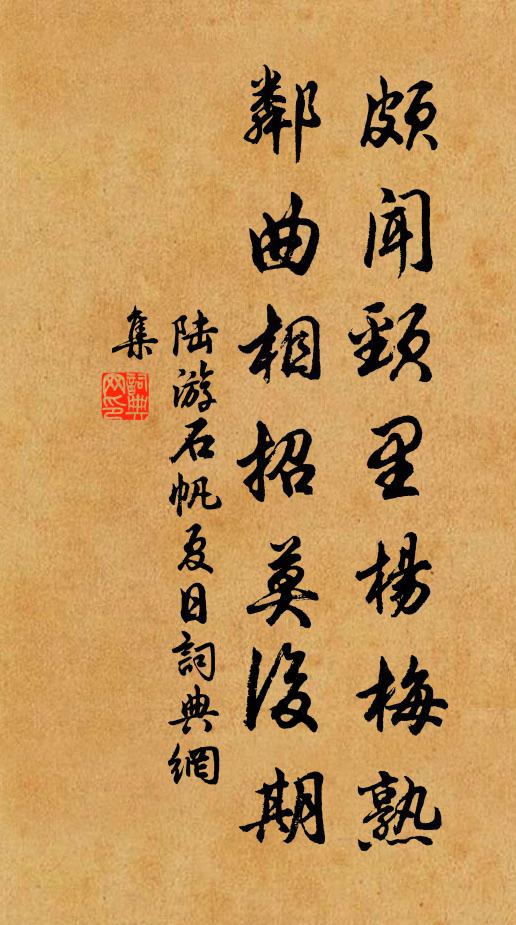 頗聞頸里楊梅熟
鄰曲相招莫後期
陆游石帆夏日詞典網
集
詞典網印